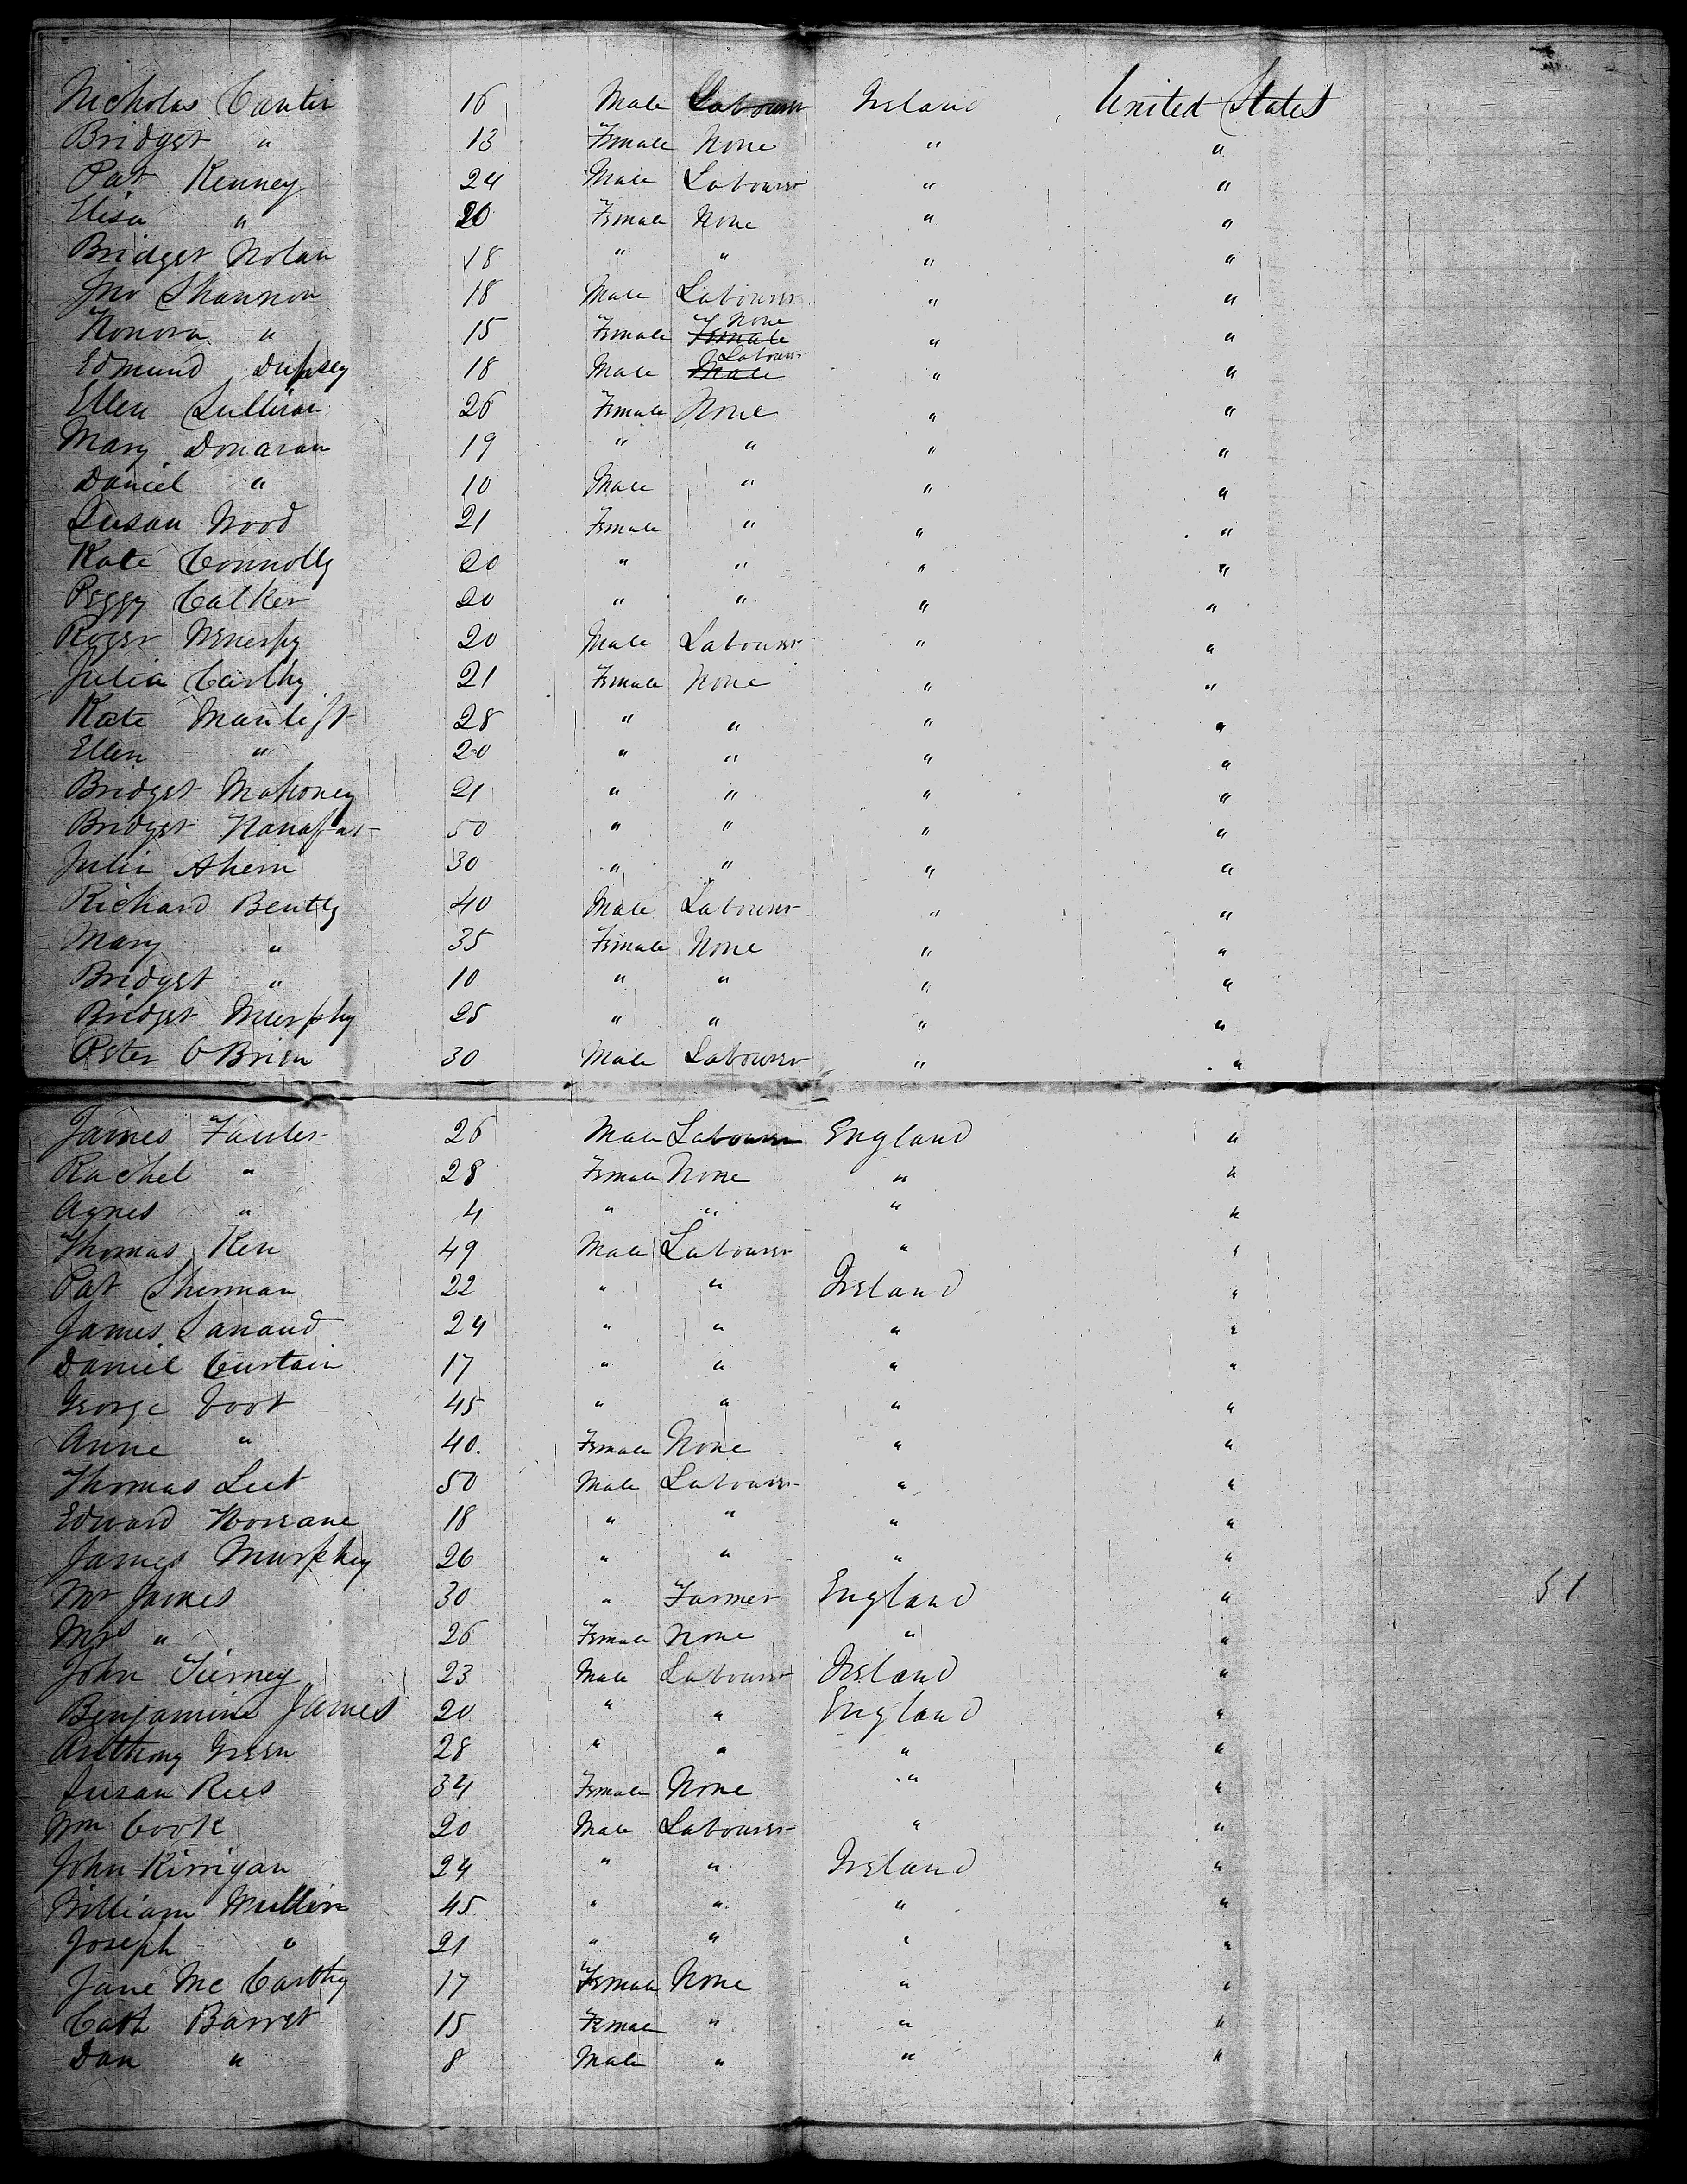 Nicholas Canter 16 Male Labourer Ireland United States
Bridget " 13 Female None " "
Pat Kenney 24 Male Labourer " "
Elisa " 20 Female None " "
Bridget Nolan 18 " " " "
Jno Shannon 18 Male Labourer " "
Honora " 15 Female None " "
Edmund Dupsey 18 Male Labourer " "
Ellen Sullivan 26 Female None " "
Mary Donavan 19 " " " "
Daniel " 10 Male " " "
Susan Wood 21 Female " " "
Kate Connolly 20 " " " "
Peggy Calker 20 " " " "
Roger 20 Male Labourer " "
Julia Carthy 21 Female None " "
Kate 28 " " " "
Ellen " 20 " " " "
Bridget Mahoney 21 " " " "
Bridget 50 " " " "
Julia Ahern 30 " " " "
Richard Bently 40 Male Labourer " "
Mary " 35 Female None " "
Bridget " 10 " " " "
Bridget Murphy 25 " " " "
Peter O Brien 30 Male Labourer " "
James 26 Male Labourer England "
Rachel " 28 Female None " "
Agnes " 4 " " " "
Thomas Ken 49 Male Labourer " "
Pat Sherman 22 " " Ireland "
James 24 " " " "
Daniel Curtain 17 " " " "
George Coot 45 " " " "
Anne " 40 Female None " "
Thomas Leet 50 Male Labourer " "
Edward 18 " " " "
James Murphey 26 " " " "
Mr James 30 " Farmer England " 51
Mrs " 26 Female None " "
John Tierney 23 Male Labourer Ireland "
Benjamin James 20 " " England "
Anthony Green 28 " " " "
Susan Rees 34 Female None " "
Wm Cook 20 Male Labourer " "
John Kirrigan 24 " " Ireland "
William Mullin 45 " " " "
Joseph " 21 " " " "
Jane Mc Carthy 17 Female None " "
Cath Barret 15 Female " " "
Dan " 8 Male " " "